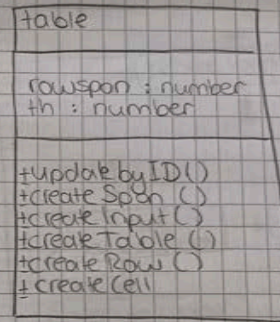 table
rowspan : number
th : number
+updatebyID()
+createSpan ()
+createInput()
+createTable ()
+createRow ()
+createCell